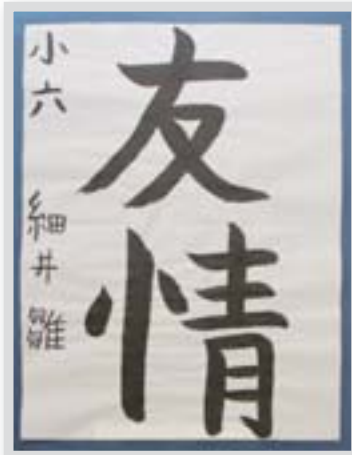 友情
小六 細井